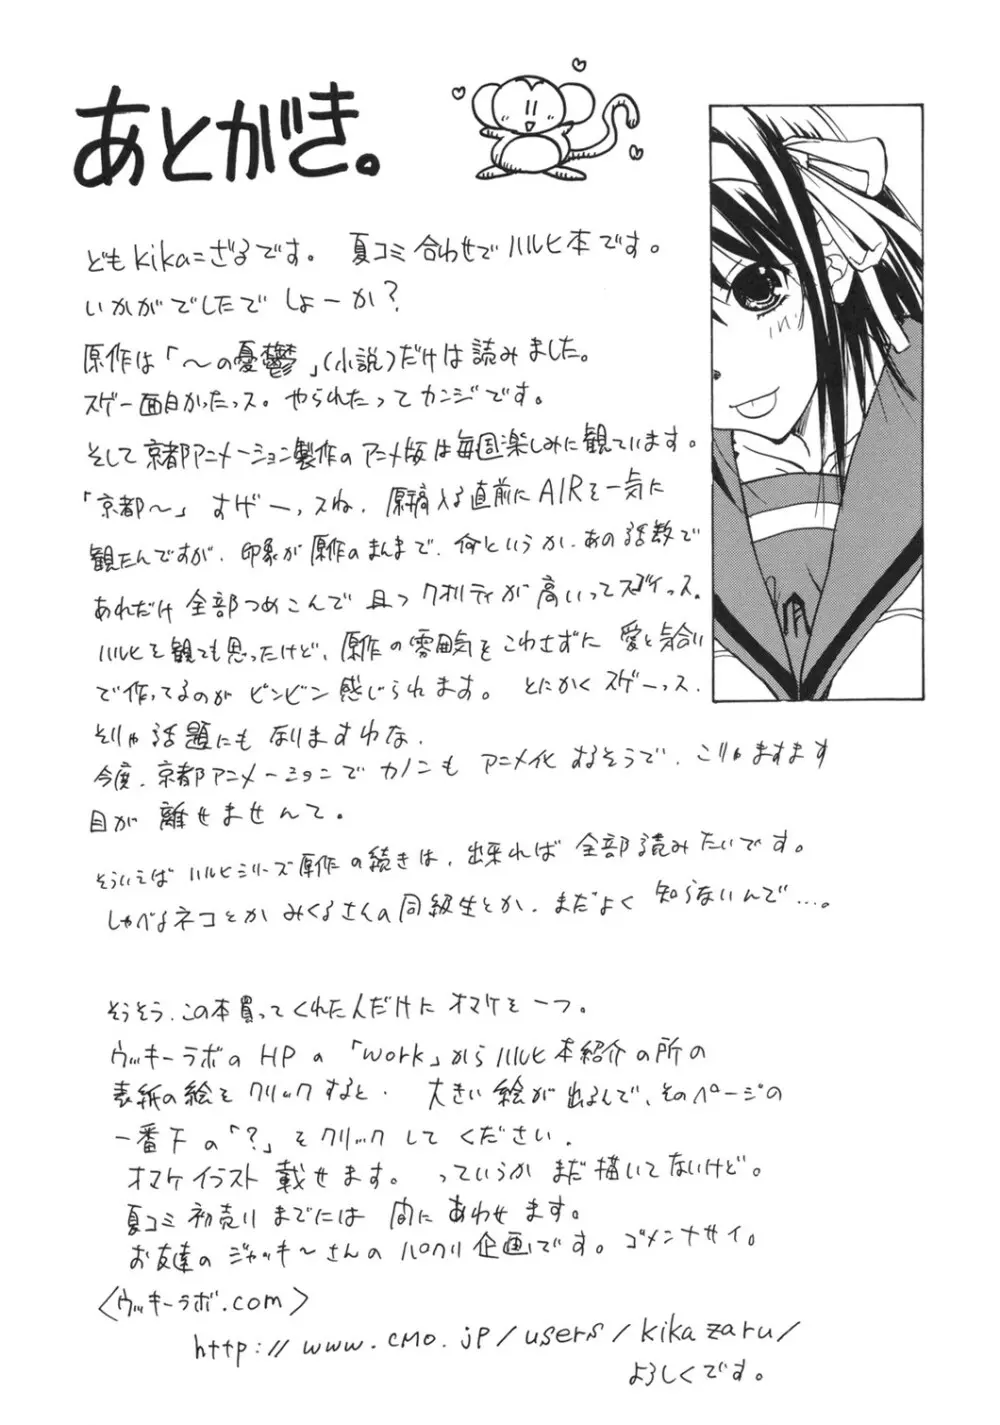 あとがき。
どもkika=ざるです。 夏コミ合わせでハルヒ本です。
いかがでしたでしょーか?
原作は「〜の憂鬱」(小説)だけは読みました。
スゲー面白かったっス。やられたってカンジです。
そして京都アニメーション製作のアニメ版は毎週楽しみに観ています。
「京都〜」すげーっスね、原稿入る直前にAIRを一気に
観たんですが、印象が原作のまんまで、何というか、あの話数で
あれだけ全部つめこんで且つクオリティが高いってスゴイっス。
ハルヒを観ても思ったけど、原作の雰囲気をこわさずに愛と気合い
で作ってるのがビンビン感じられます。とにかくスゲーっス、
そりゃ話題にもなりますわな、
今度、京都アニメーションでカノンもアニメ化するそうで、こりゃますます
目が離せませんて。
そういえばハルヒシリーズ原作の続きは、出来れば全部読みたいです。
しゃべるネコとかみくるさんの同級生とか、まだよく知らないんで…。
そうそう、この本買ってくれた人だけにオマケを一つ。
ウッキーラボのHPの「work」からハルヒ本紹介の所の
表紙の絵をクリックすると、大きい絵が出るんで、そのページの
一番下の「?」をクリックしてください、
オマケイラスト載せます。っていうかまだ描いてないけど。
夏コミ初売りまでには間にあわせます。
お友達のジャッキ〜さんのパクリ企画です。ゴメンナサイ。
〈ウッキーラボ.com〉
http://www.cmo.jp/users/kikazaru/
よろしくです。